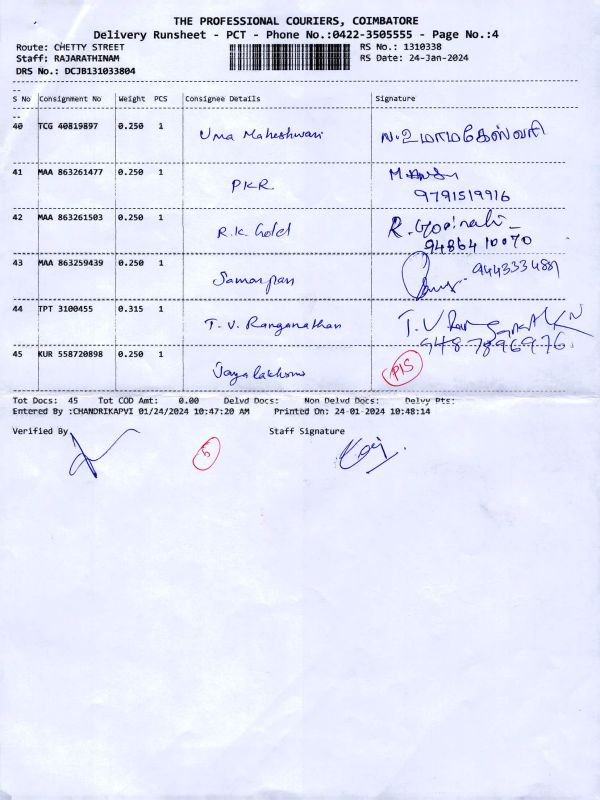 THE PROFESSIONAL COURIERS, COIMBATORE
Delivery Runsheet - PCT - Phone No.:0422-3505555 - Page No.:4
Route: CHETTY STREET
RS No.: 1310338
Staff: RAJARATHINAM
RS Date: 24-Jan-2024
DRS No.: DCJB131033804
S No Consignment No Weight PCS Consignee Details Signature
40 TCG 40819897 0.250 1 Uma Maheshwari உமாமகேஸ்வரி
41 MAA 863261477 0.250 1 PKR
9791519916
42 MAA 863261503 0.250 1 R.K. Gold R. Gopinath
9486410070
43 MAA 863259439 0.250 1 Samarpan
44 TPT 3100455 0.315 1 T. V. Ranganathan T. V
9487896976
45 KUR 558720898 0.250 1
Tot Docs: 45 Tot COD Amt: 0.00 Delvd Docs: Non Delvd Docs: Delvy Pts:
Entered By :CHANDRIKAPVI 01/24/2024 10:47:20 AM Printed On: 24-01-2024 10:48:14
Verified By
Staff Signature
5